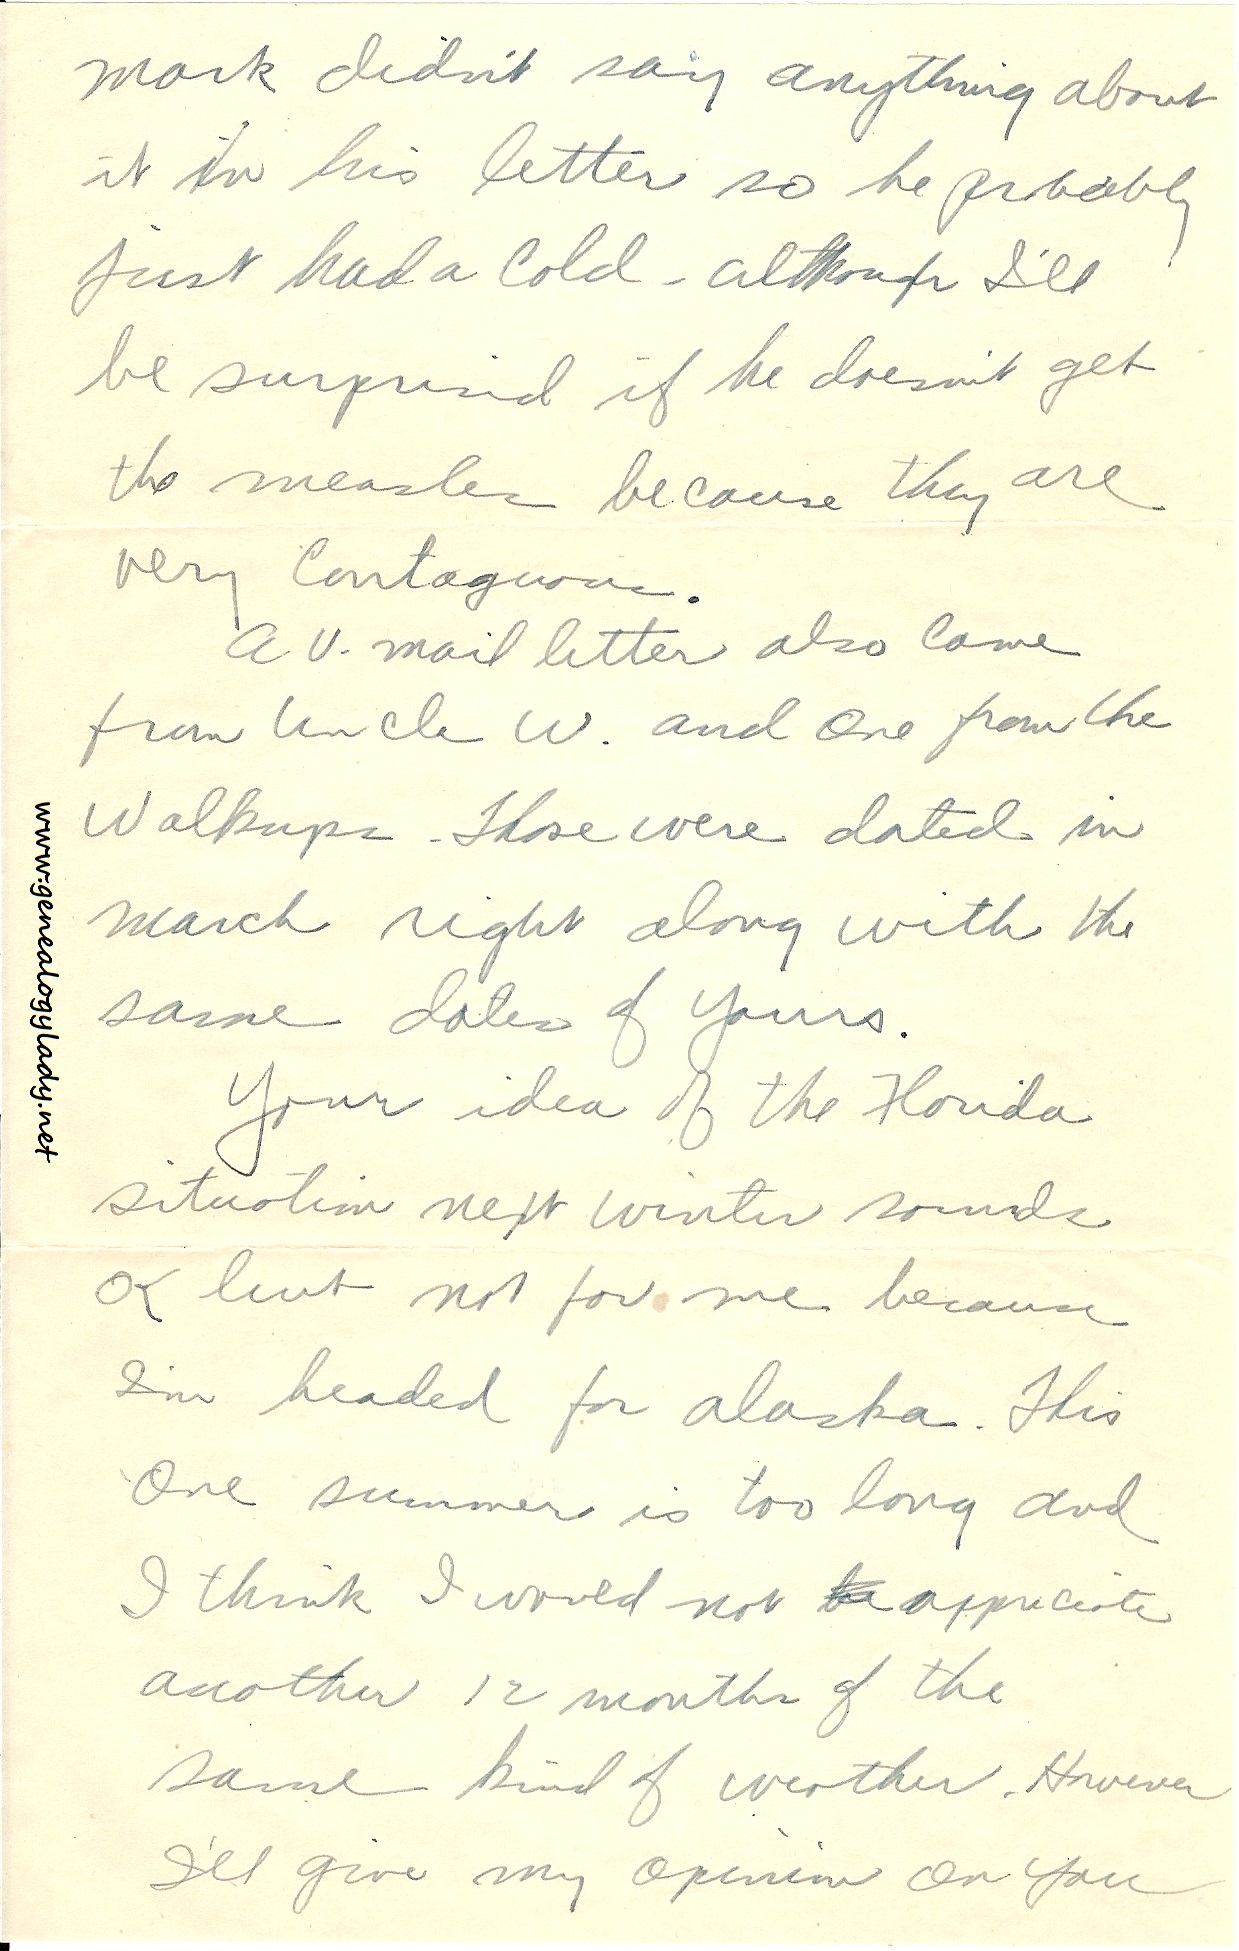 Mark didn't say anything about
it in his letter so he probably
just had a cold - although I'll
be surprised if he doesn't get
the measles because they are
very contaguous.
A V. mail letter also came
from Uncle W. and one from the
Walkups. Those were dated in
March right along with the
same dates of yours.
Your idea of the Florida
situation next winter sounds
OK but not for me because
I'm headed for Alaska. This
one summer is too long and
I think I would not be appreciate
another 12 months of the
same kind of weather. However
I'll give my opinion on you
www.genealogylady.net